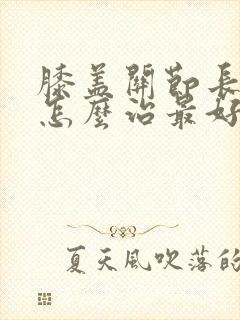 膝盖關節長
怎麼治最好
夏天風吹落的